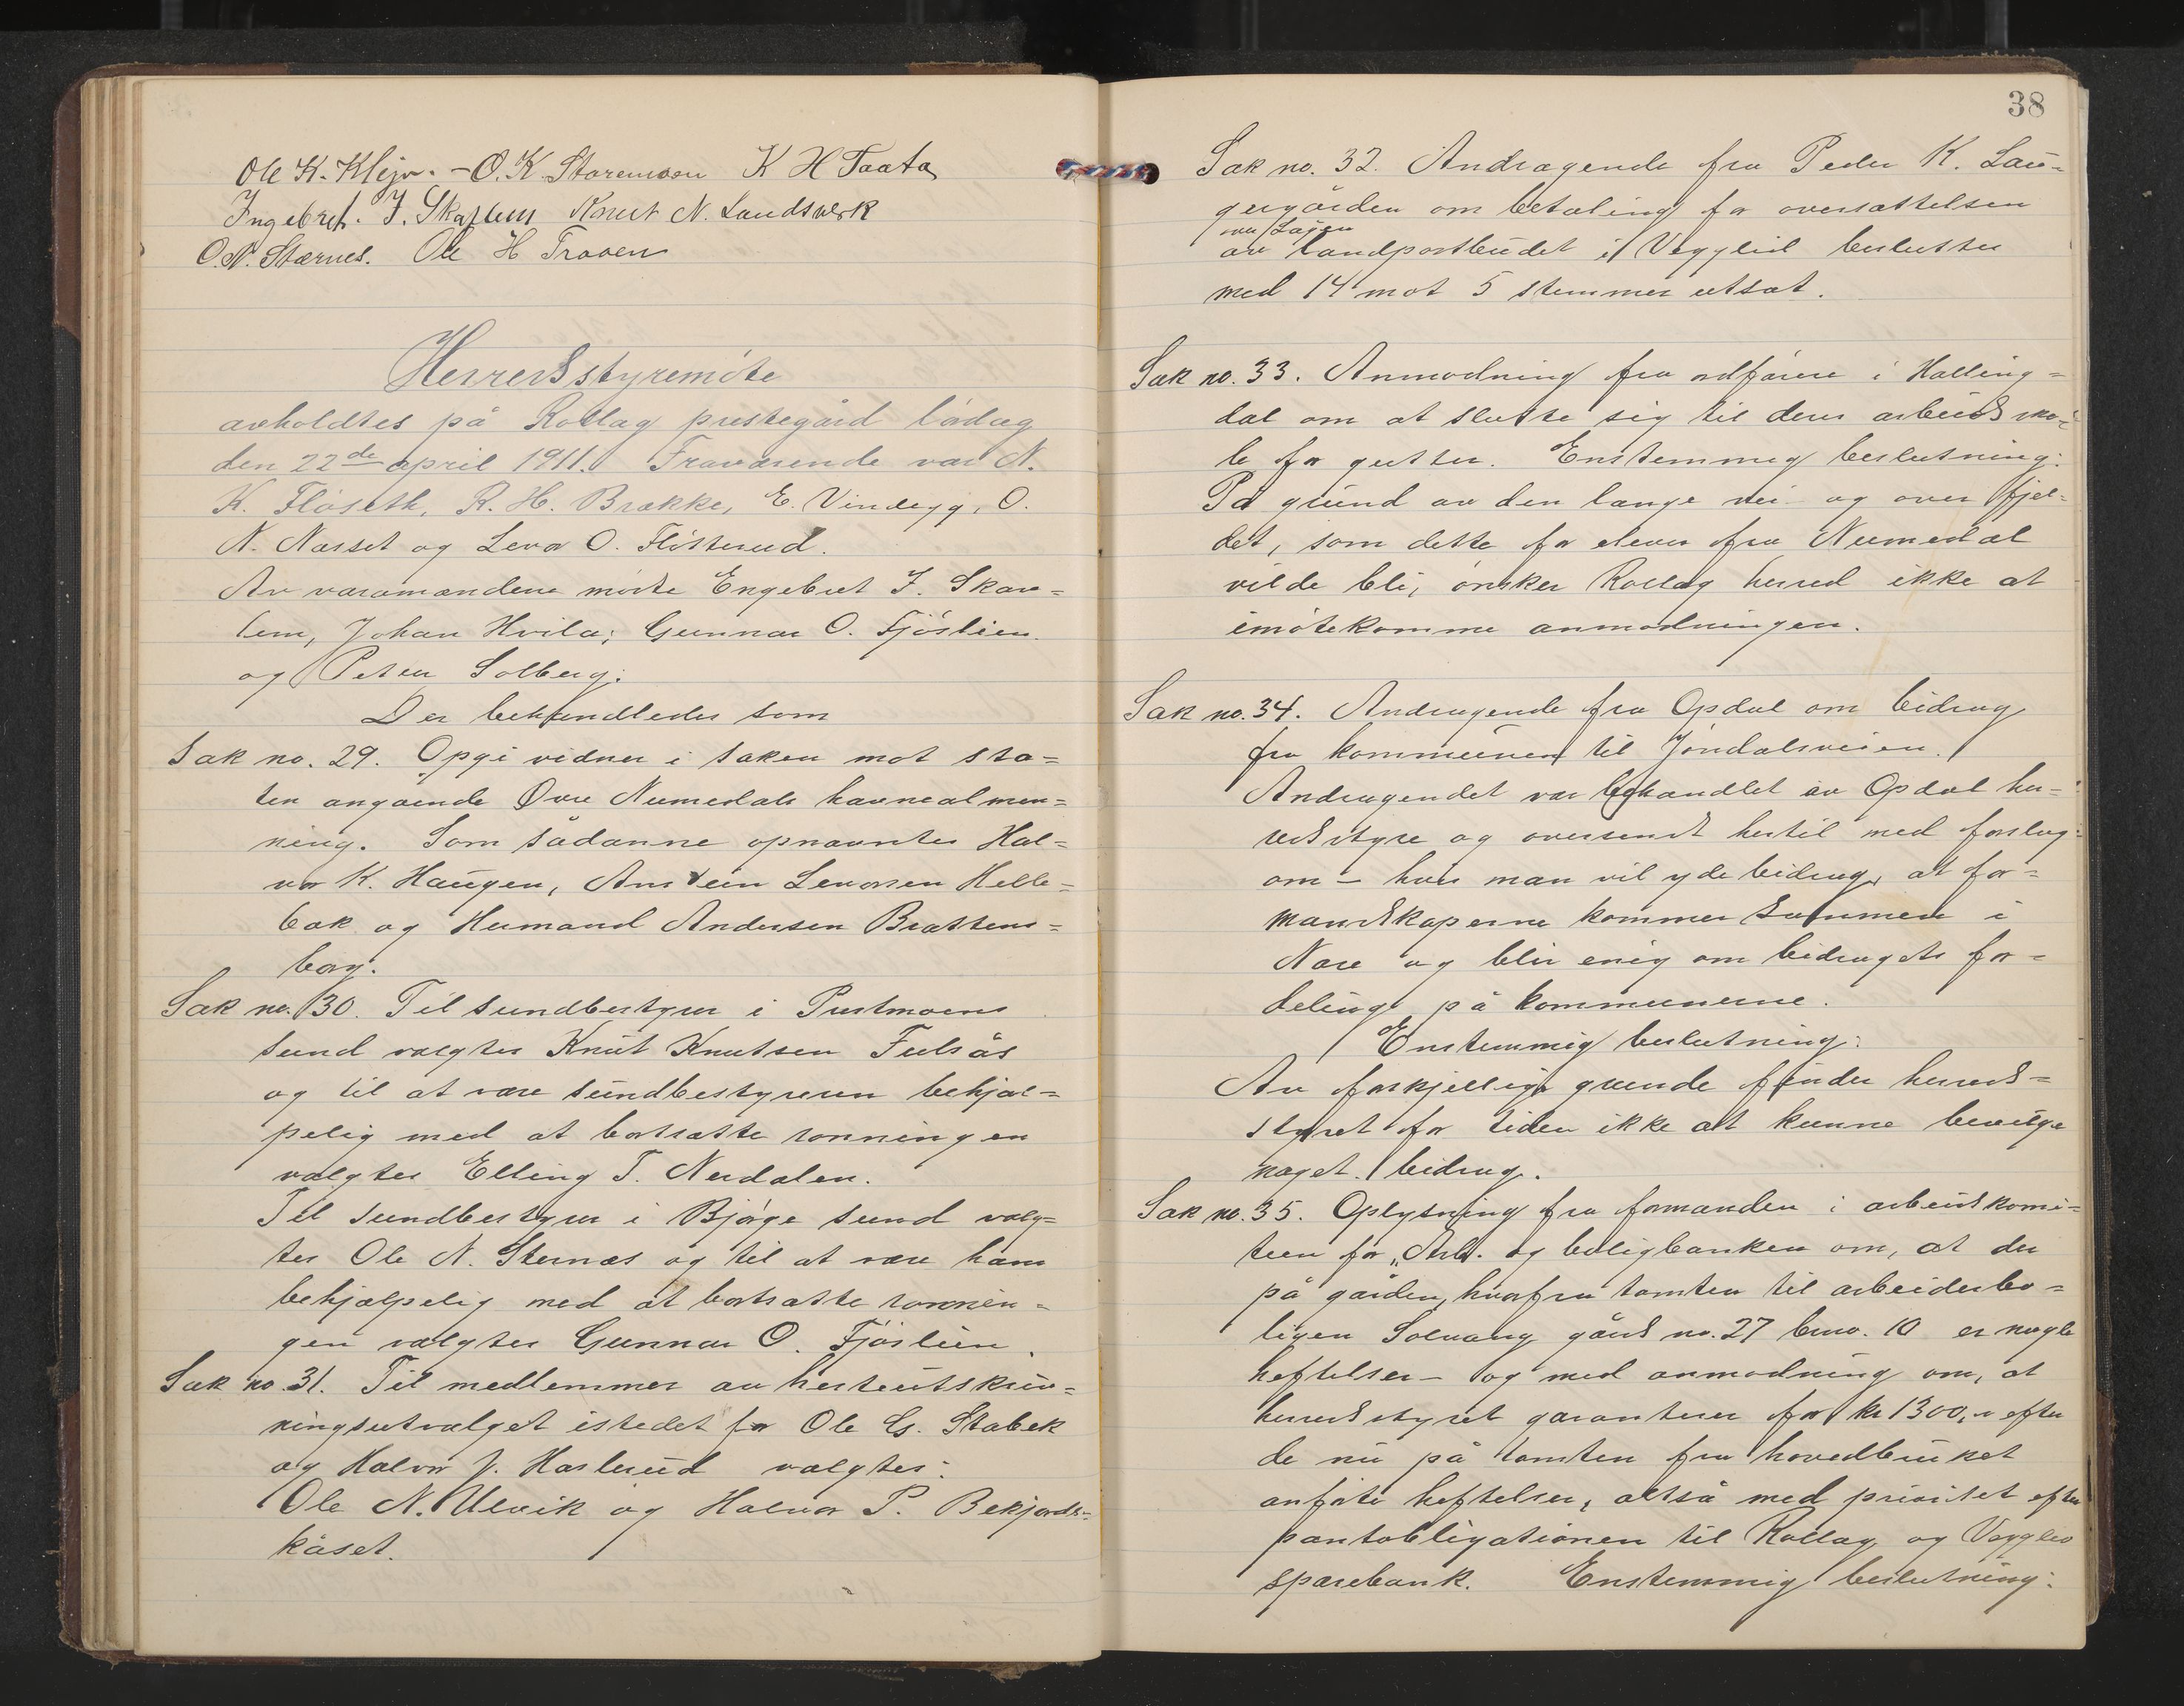 Ole K. Klejv. - O. K. Staremoen K H Taata
Ingebret. J. Skarlem Knut N. Landsverk
O. N. Stærnes. Ole H Traaen
Herredsstyremöte
avholdtes på Rollag prestegård lördag
den 22de april 1911. Fraværende var N.
K. Flåseth, R. H. Brække, E. Vindegg, O.
N. Næset og Levor O. Flisterud.
Av varamændene mötte Engebret J. Skar=
lem, Johan Hvila, Gunnar O. Fjöslien
og Peter Solberg.
Der behandledes som
Sak no. 29. Opgi vidner i saken mot sta=
ten angående Övre Numedals havnealmen=
ning. Som sådanne opnævntes Hal=
vor K. Haugen, Anstein Levorsen Helle=
bæk og Hermand Andersen Brattens=
borg.
Sak no. 30. Til sundbestyrer i Prestmoens
sund valgtes Knut Knutsen Fulsås
og til at være sundbestyreren behjæl=
pelig med at bortsætte roningen
valgtes Elling T. Nerdalen.
Til sundbestyrer i Bjørge sund valg=
tes Ole N. Sternæs og til at være ham
behjælpelig med at bortsætte ronnin=
gen valgtes Gunnar O. Fjöslien.
Sak no. 31. Til medlemmer av hesteutskriv=
ningsutvalget istedet for Ole Gs. Stabek
og Halvor J. Haslerud valgtes:
Ole N. Ulvik og Halvor P. Bekjords=
kåset.
38
Sak no. 32. Andragende fra Peder K. Lau=
gergården om betaling for oversættelsen
over Lågen
av landpostbudet i Vegglid besluttes
med 14 mot 5 stemmer utsat.
Sak no. 33. Anmodning fra ordförere i Halling=
dal om at slutte sig til deres arbeidssko=
le for gutter. Enstemmig beslutning:
På grund av den lange vei og over fjel=
det, som dette for elever fra Numedal
vilde bli, önsker Rollag herred ikke at
imötekomme anmodningen.
Sak no. 34. Andragende fra Opdal om bidrag
fra kommunen til Jöndalsveien.
Andragendet var behandlet av Opdal her=
redsstyre og oversendt hertil med forslag
om - hvis man vil yde bidrag, at for=
mandskaperne kommer sammen i
Nore og blir enig om bidragets for=
deling på kommunerne.
Enstemmig beslutning:
Av forskjellige grunde finder herreds=
styret for tiden ikke at kunne bevilge
noget bidrag.
Sak no. 35. Oplysning fra formanden i arbeidskomi=
teen for „Arb. og boligbanken om, at der
på gården, hvorfra tomten til arbeiderbo=
ligen Solvang gårds no. 27 brno. 10 er nogle
heftelser - og med anmodning om, at
herredsstyret garanterer for kr 1300,- efter
de nu på tomten fra hovedbruket
anförte heftelser, altså med prioritet efter
pantobligationen til Rollag og Vegglis
sparebank. Enstemmig beslutning: